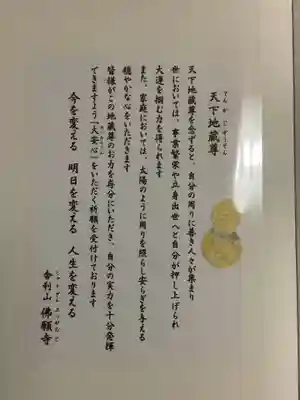 天下地蔵尊
てんがじぞうそん
天下地蔵尊を念ずると、自分の周りに善き人々が集まり
世においては、事業繁栄や立身出世へと自分が押し上げられ
大運を掴む力を得られます
また、家庭においては、太陽のように周りを照らし安らぎを与える
穏やかな心をいただきます
皆様がこの地蔵尊のお力を存分にいただき、自分の実力を十分発揮
できますよう「大安心」をいただく祈願を受付けております
今を変える 明日を変える 人生を変える
舎利山 佛願寺